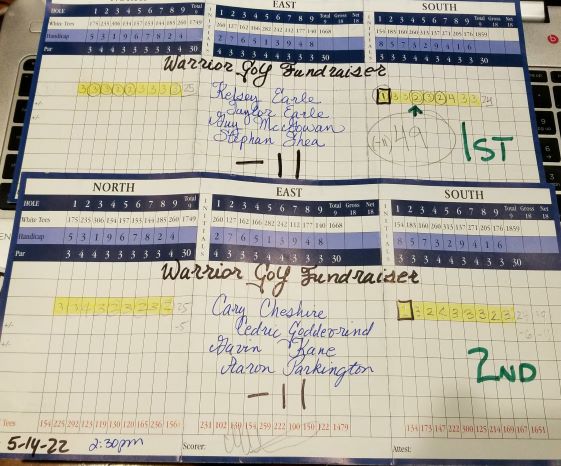 EAST SOUTH
HOLE 1 2 3 4 5 6 7 8 9 Total 9 1 2 3 4 5 6 7 8 9 Total 9 Gross 18 Net 18 1 2 3 4 5 6 7 8 9 Total 9 Gross 18 Net 18
White Tees 175 235 306 154 157 153 144 185 260 1749 260 127 162 166 282 242 112 177 140 1668 154 185 160 260 313 137 271 205 176 1859
Handicap 5 3 1 9 6 7 8 2 4 2 7 6 5 1 3 9 4 8 8 5 7 3 2 9 4 1 6
Par 3 4 4 3 3 3 3 3 4 30 4 3 3 3 4 4 3 3 3 30 3 3 3 4 4 3 4 3 3 30
Warrior Golf Fundraiser
3 3 3 2 2 3 3 3 3 25
Kelsey Earle
1 3 3 2 3 2 4 3 3 24
Taylor Earle
Guy McGowan
Stephan Shea
(-11) 49
1ST
-11
NORTH EAST SOUTH
HOLE 1 2 3 4 5 6 7 8 9 Total 9 INITIALS 1 2 3 4 5 6 7 8 9 Total 9 Gross 18 Net 18 INITIALS 1 2 3 4 5 6 7 8 9 Total 9 Gross 18 Net 18
White Tees 175 235 306 154 157 153 144 185 260 1749 260 127 162 166 282 242 112 177 140 1668 154 185 160 260 313 137 271 205 176 1859
Handicap 5 3 1 9 6 7 8 2 4 2 7 6 5 1 3 9 4 8 8 5 7 3 2 9 4 1 6
Par 3 4 4 3 3 3 3 3 4 30 4 3 3 3 4 4 3 3 3 30 3 3 3 4 4 3 4 3 3 30
Warrior Golf Fundraiser
3 3 4 3 2 3 2 3 2 25
Cary Cheshire
1 3 2 4 3 3 3 2 3
+/- -5
Cedric Godderind
Gavin Kane
Aaron Parkington
2ND
-11
Tees 154 225 292 123 119 130 120 165 236 1564 231 102 139 154 259 222 100 150 122 1479 134 173 147 222 300 125 214 169 167 1651
5-14-22 2:30pm Scorer: Attest: